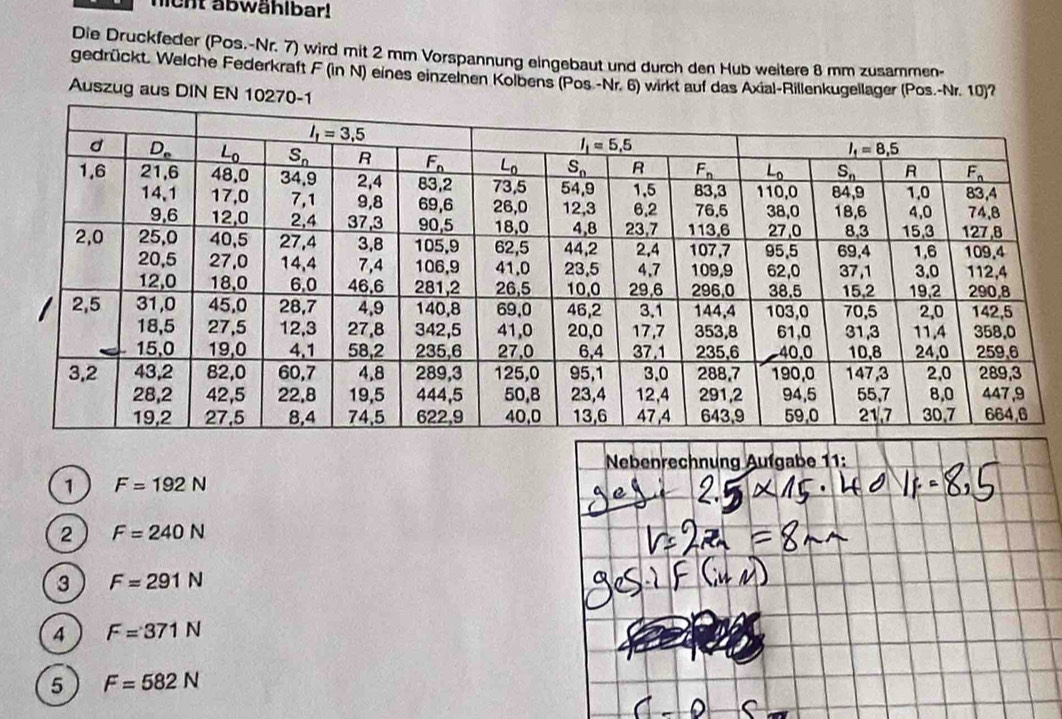 nicht abwählbar!
Die Druckfeder (Pos.-Nr. 7) wird mit 2 mm Vorspannung eingebaut und durch den Hub weitere 8 mm zusammen-
gedrückt. Welche Federkraft F (in N) eines einzelnen Kolbens (Pos.-Nr. 6) wirkt auf das Axial-Rillenkugellager (Pos.-Nr. 10)?
Auszug aus DIN EN 10270-1
lf = 3,5 lf = 5,5 lf = 8,5
d De L0 Sn R Fn L0 Sn R Fn L0 Sn R Fn
1,6 21,6 48,0 34,9 2,4 83,2 73,5 54,9 1,5 83,3 110,0 84,9 1,0 83,4
14,1 17,0 7,1 9,8 69,6 26,0 12,3 6,2 76,5 38,0 18,6 4,0 74,8
9,6 12,0 2,4 37,3 90,5 18,0 4,8 23,7 113,6 27,0 8,3 15,3 127,8
2,0 25,0 40,5 27,4 3,8 105,9 62,5 44,2 2,4 107,7 95,5 69,4 1,6 109,4
20,5 27,0 14,4 7,4 106,9 41,0 23,5 4,7 109,9 62,0 37,1 3,0 112,4
12,0 18,0 6,0 46,6 281,2 26,5 10,0 29,6 296,0 38,5 15,2 19,2 290,8
2,5 31,0 45,0 28,7 4,9 140,8 69,0 46,2 3,1 144,4 103,0 70,5 2,0 142,5
18,5 27,5 12,3 27,8 342,5 41,0 20,0 17,7 353,8 61,0 31,3 11,4 358,0
15,0 19,0 4,1 58,2 235,6 27,0 6,4 37,1 235,6 40,0 10,8 24,0 259,6
3,2 43,2 82,0 60,7 4,8 289,3 125,0 95,1 3,0 288,7 190,0 147,3 2,0 289,3
28,2 42,5 22,8 19,5 444,5 50,8 23,4 12,4 291,2 94,5 55,7 8,0 447,9
19,2 27,5 8,4 74,5 622,9 40,0 13,6 47,4 643,9 59,0 21,7 30,7 664,6
1 F = 192 N
2 F = 240 N
3 F = 291 N
4 F = 371 N
5 F = 582 N
Nebenrechnung Aufgabe 11:
geg: 2.5 × 15 · 40 lf = 8,5
= 8mm
ges: F (in N)